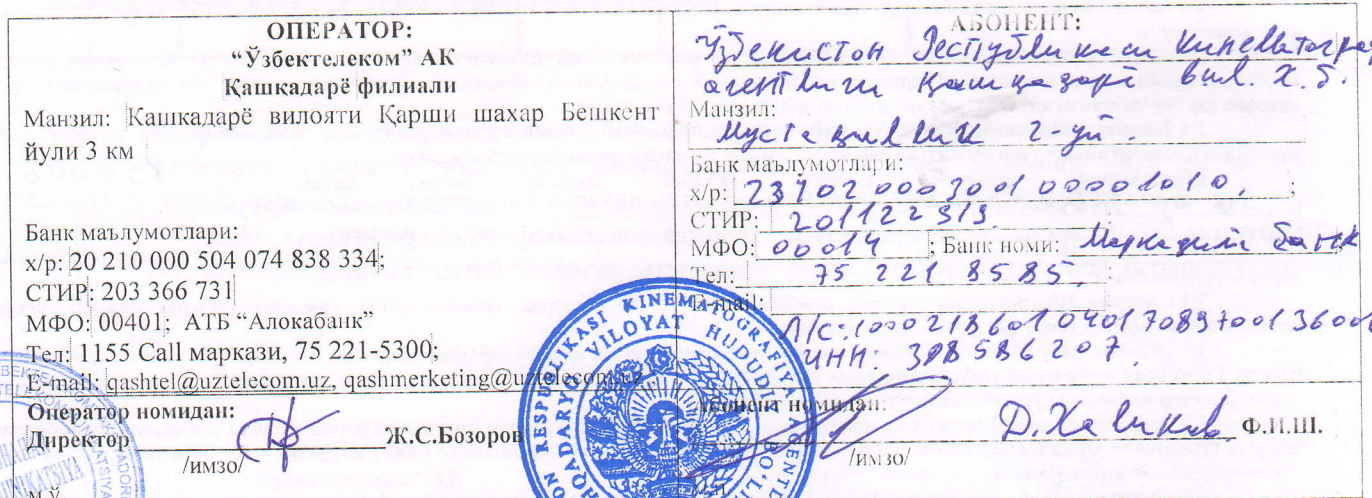 ОПЕРАТОР:
“Ўзбектелеком” АК
Қашкадарё филиали
Манзил: Кашкадарё вилояти Қарши шахар Бешкент
йули 3 км
Банк маълумотлари:
х/р: 20 210 000 504 074 838 334;
СТИР: 203 366 731
МФО: 00401; АТБ “Алокабанк”
Тел: 1155 Call маркази, 75 221-5300;
E-mail: qashtel@uztelecom.uz, qashmerketing@uztelecom.uz
Оператор номидан:
Директор Ж.С.Бозоров
/имзо/
М.Ў
АБОНЕНТ:
Ўзбекистон Республикаси Кинематогра
агентлиги Қашқадарё вил. Х.Б.
Манзил:
Мустақиллик 2-уй.
Банк маълумотлари:
х/р: 23402 000 3001 00001010,
СТИР: 201122919
МФО: 00014; Банк номи: Марказий Банк
Тел: 75 221 8585.
E-mail:
Л/С: 100021860104017089700136001
ИНН: 308586207
Абонент номидан:
Д.Халиков Ф.И.Ш.
/имзо/
RESPUBLIKASI KINEMATOGRAFIYA AGENTL
QASHQADARYO VILOYAT HUDUDIY BO'LI